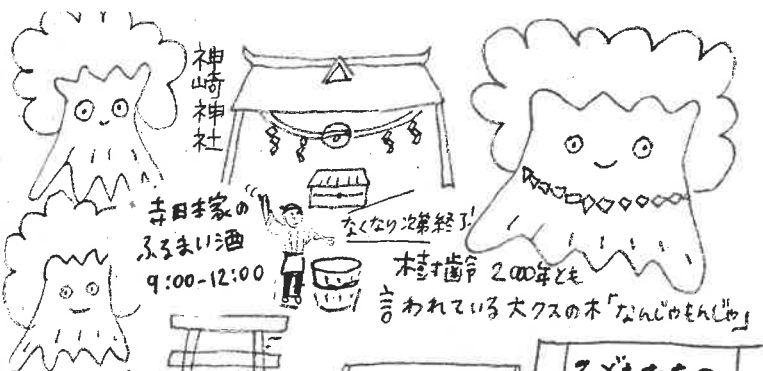 神崎神社
寺田本家の
ふるまい酒
9:00-12:00
なくなり次第終了!
樹齢 2,000年とも
言われている大クスの木「なんじゃもんじゃ」